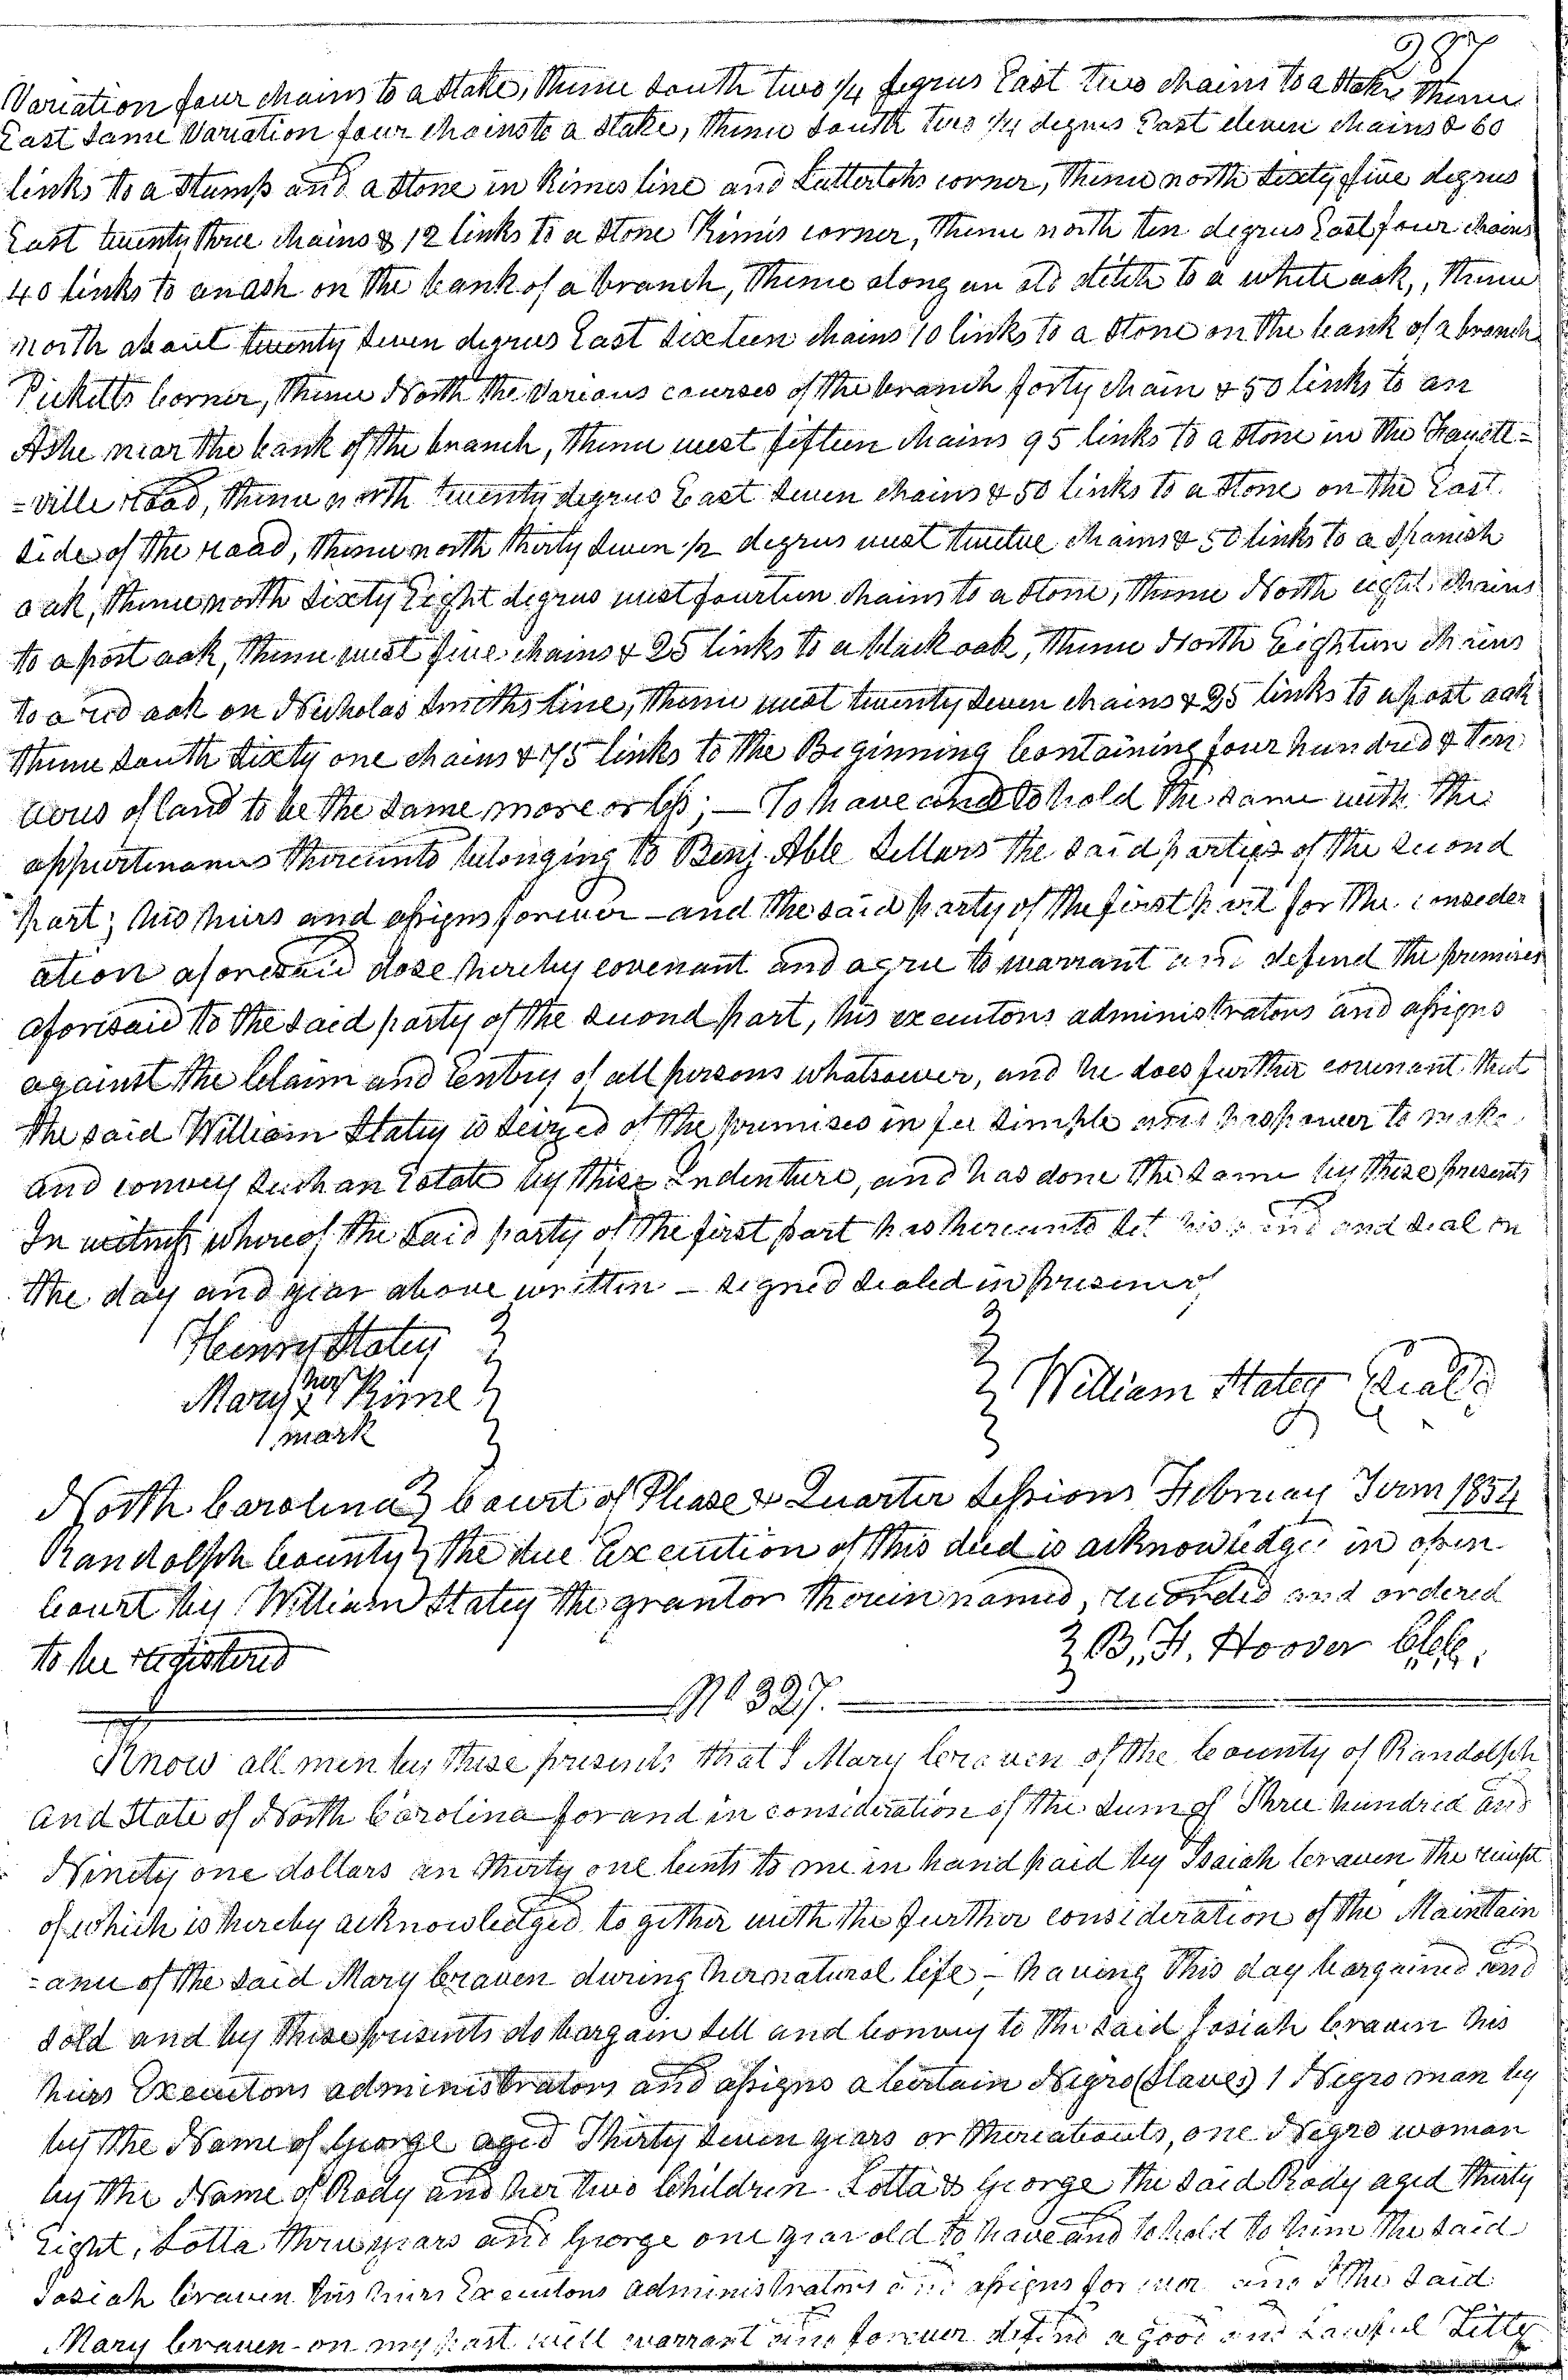 287
Variation four chains to a stake, thence South two 1/4 degrees East two chains to a stake thence
East same Variation four chains to a stake, thence South two 1/4 degrees East eleven chains & 60
links to a stump and a stone in Rimes line and Lutterlohs corner, thence north sixty five degrees
East twenty three chains & 12 links to a stone Rimes corner, thence north ten degrees East four chains
40 links to an ash on the bank of a branch, thence along an old ditch to a white oak,, thence
north about twenty seven degrees East sixteen chains 10 links to a stone on the bank of a branch
Picketts Corner, thence North the various courses of the branch forty chain & 50 links to an
Ashe near the bank of the branch, thence west fifteen chains 95 links to a stone in the Fayett=
=ville road, thence north twenty degrees East seven chains & 50 links to a stone on the East
side of the road, thence north thirty seven 1/2 degrees west twelve chains & 50 links to a Spanish
oak, thence north sixty Eight degrees west fourteen chains to a stone, thence North eight chains
to a post oak, thence west five chains & 25 links to a black oak, thence North Eighteen chains
to a red oak on Nicholas Smiths line, thence west twenty seven chains & 25 links to a post oak
thence South sixty one chains & 75 links to the Beginning Containing four hundred & ten
acres of land to be the same more or less; — To have and to hold the same with the
appurtenances thereunto belonging to Benj. Able Sellars the said parties of the second
part; his heirs and assigns forever – and the said party of the first part for the consider
ation aforesaid dose hereby covenant and agree to warrant and defend the premises
aforesaid to the said party of the second part, his executors administrators and assigns
against the Claim and Entry of all persons whatsoever, and he does further covenant that
the said William Staley is seized of the premises in fee simple and has power to make
and convey such an Estate by these Indenture, and has done the same by these presents
In witness whereof the said party of the first part has hereunto set his hand and seal on
the day and year above written – signed sealed in presence of
Henry Staley
Mary her x Rime
mark
William Staley Seal
North Carolina } Court of Please & Quarter Sessions February Term 1854
Randolph County } The due Execution of this deed is acknowledged in open
Court by William Staley the grantor therein named, recorded and ordered
to be registered
B,, F. Hoover Clk.
No 327.
Know all men by these presents that I Mary Craven of the County of Randolph
and State of North Carolina for and in consideration of the sum of Three hundred and
Ninety one dollars an thirty one Cents to me in hand paid by Isaiah Craven the receipt
of which is hereby acknowledged together with the further consideration of the Maintain
=ance of the said Mary Craven during her natural life – having this day bargained and
sold and by these presents do bargain sell and Convey to the said Josiah Craven his
heirs Executors administrators and assigns a Certain Negro (Slaves) 1 Negro man by
by the Name of George aged Thirty seven years or thereabouts, one Negro woman
by the Name of Rody and her two Children Lotta & George the said Rody aged thirty
Eight, Lotta three years and George one year old to have and to hold to him the said
Josiah Craven his heirs Executors administrators and assigns forever and I the said
Mary Craven on my part will warrant and forever defend a good and Lawful Title